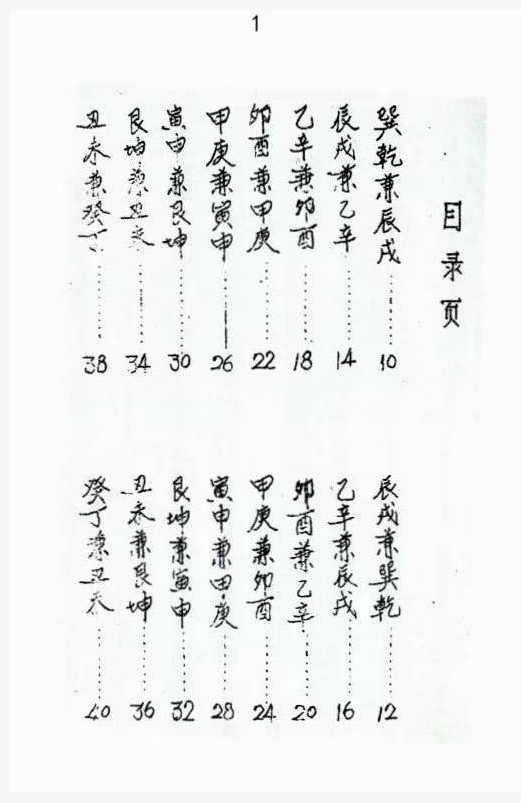 1
目录页
巽乾兼辰戌………10
辰戌兼巽乾………12
辰戌兼乙辛………14
乙辛兼辰戌………16
乙辛兼卯酉………18
卯酉兼乙辛………20
卯酉兼甲庚………22
甲庚兼卯酉………24
甲庚兼寅申………26
寅申兼甲庚………28
寅申兼艮坤………30
艮坤兼寅申………32
艮坤兼丑未………34
丑未兼艮坤………36
丑未兼癸丁………38
癸丁兼丑未………40